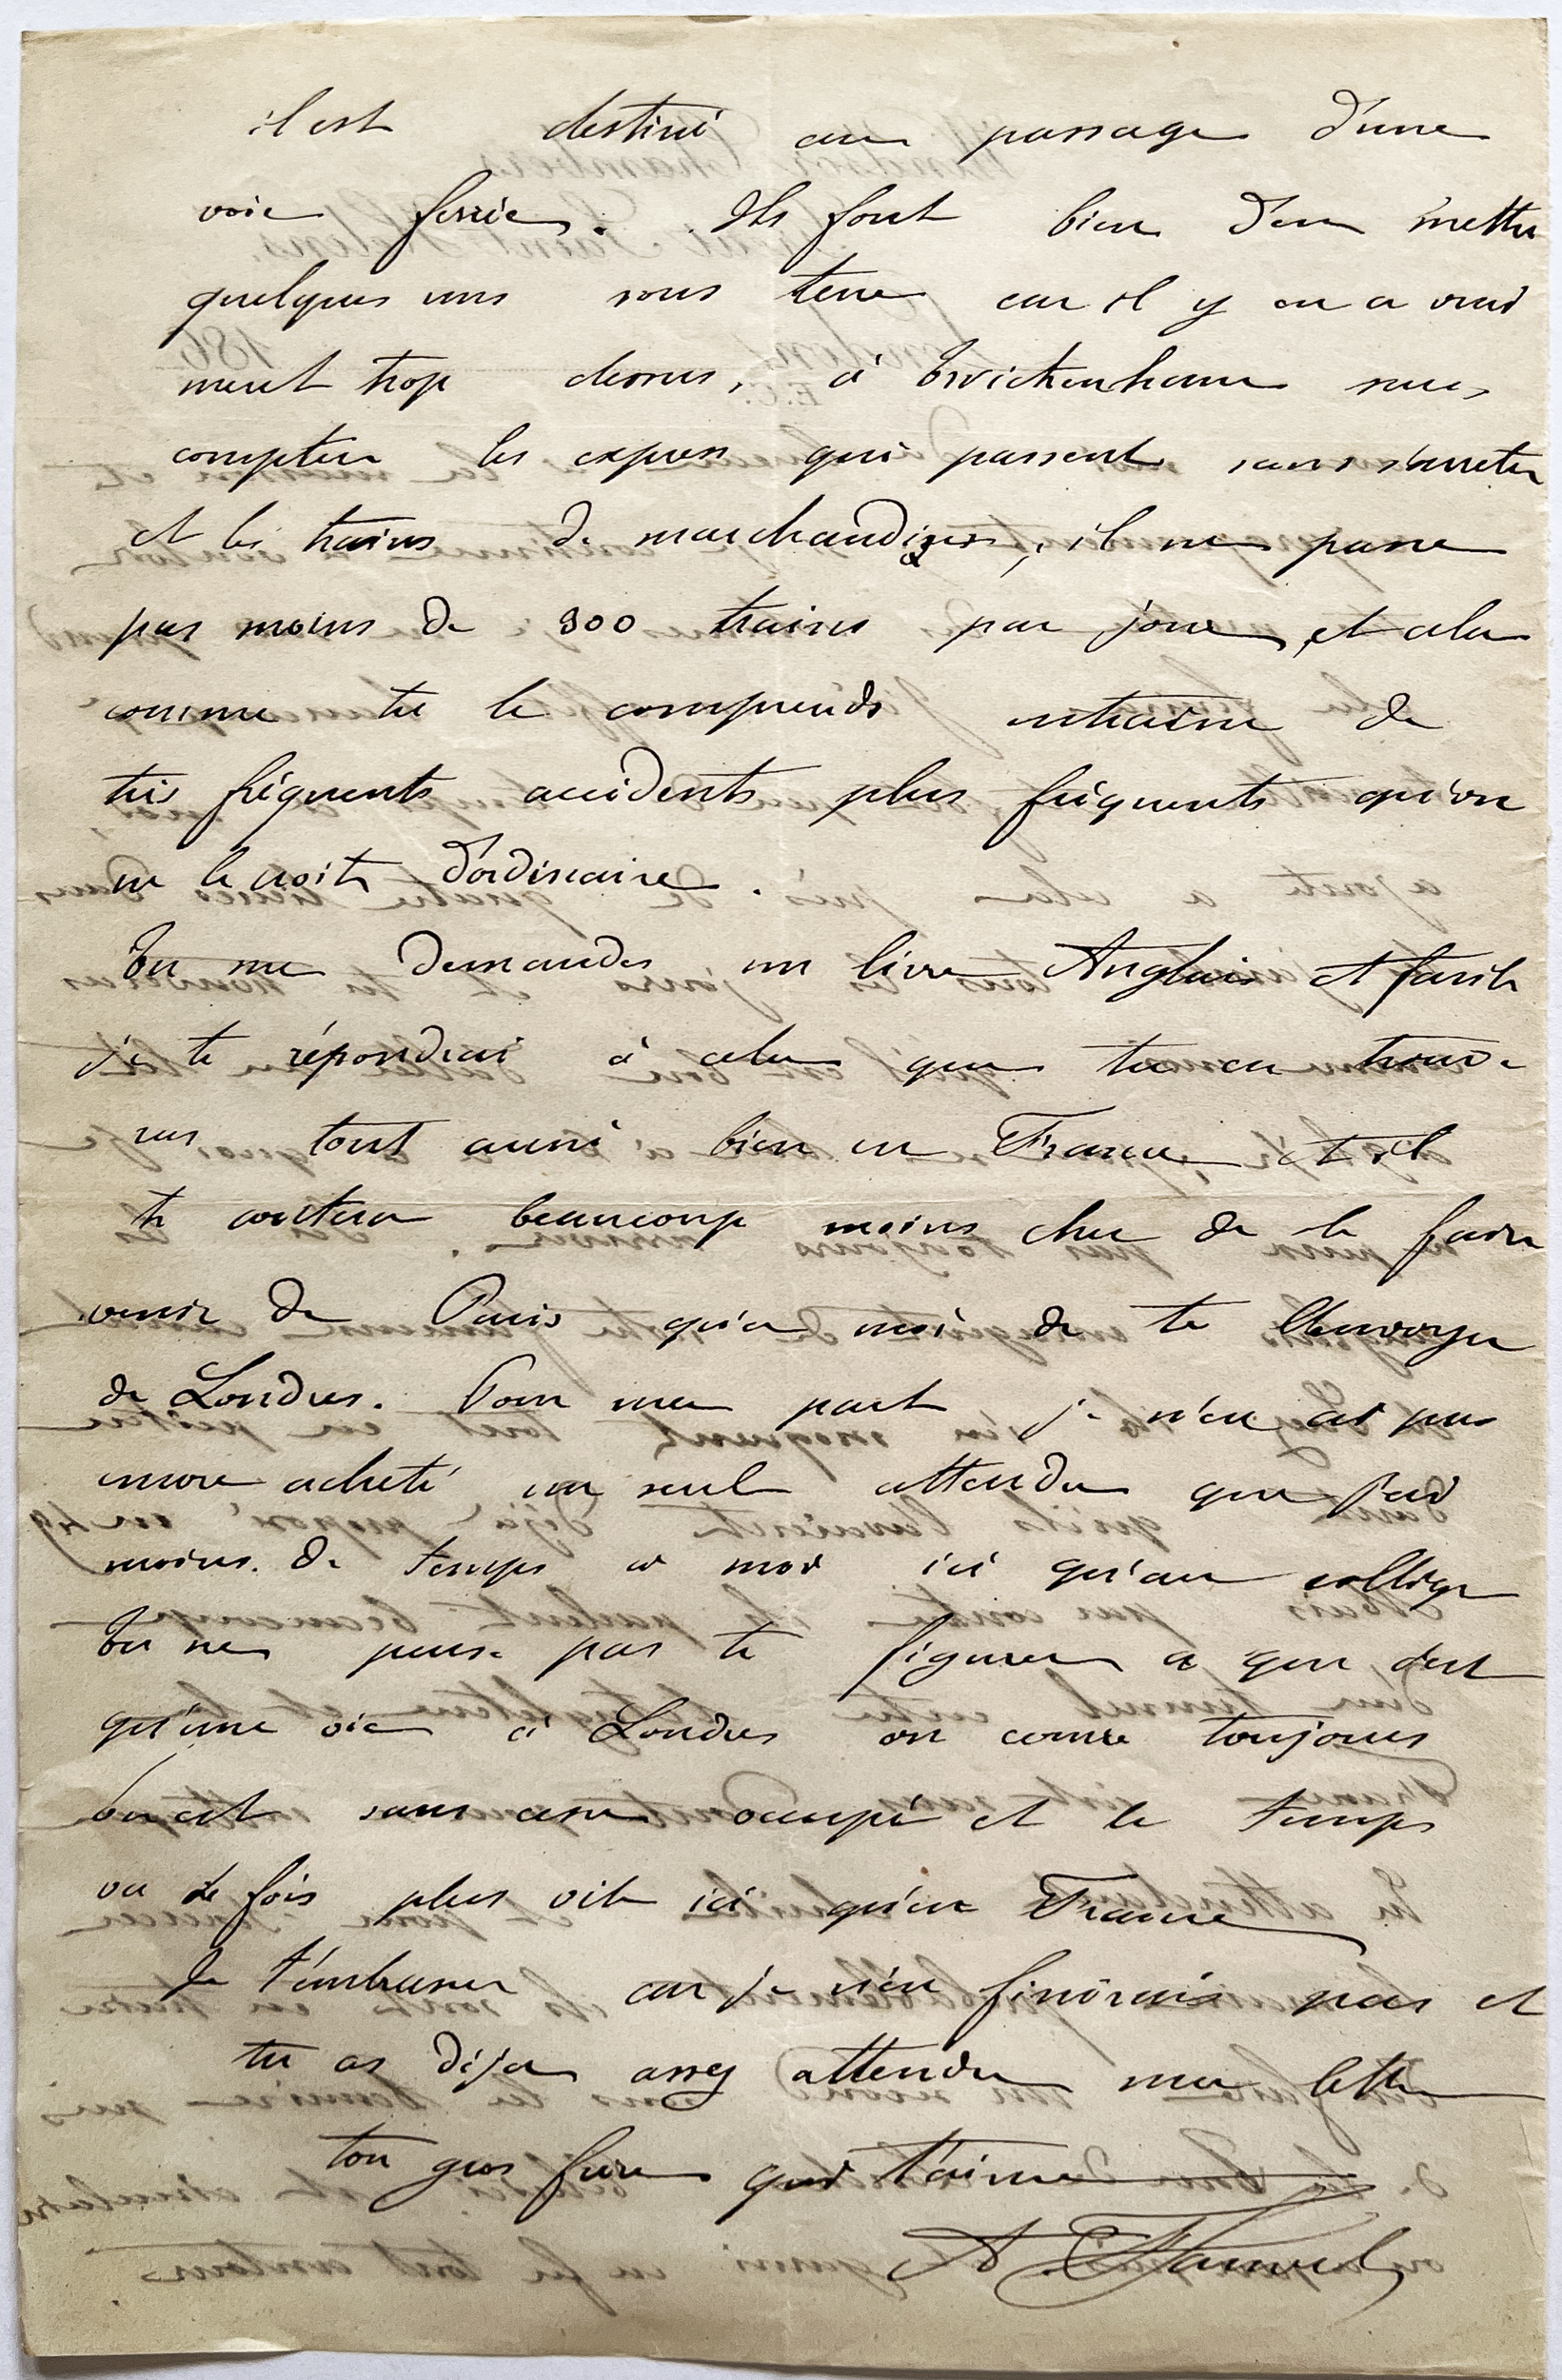 il est destiné au passage d'une
voie ferrée. Ils font bien d'en mettre
quelques uns sous terre car il y en a vrai
ment trop dessus, à Twickenham sans
compter les express qui passent sans s'arreter
et les trains de marchandises, il ne passe
pas moins de 300 trains par jour, et cela
comme tu le comprends entraine de
très fréquents accidents plus fréquents qu'on
ne le croit d'ordinaire.
Tu me demandes un livre Anglais et facile
je te répondrai à cela que tu en trouve
ras tout aussi bien en France et il
te coutera beaucoup moins cher de le faire
venir de Paris qu'a moi de te l'envoyer
de Londres. Pour ma part je n'en ai pas
encore acheté un seul attendu que j'ai
moins de temps a moi ici qu'au collège
Tu ne peux pas te figurer ce que c'est
qu'une vie à Londres on courre toujours
on est sans cesse occupé et le temps
va de fois plus vite ici qu'en France
Je t'embrasse car je n'en finirais pas et
tu as déja assez attendu ma lettre
ton gros frère qui t'aime
A